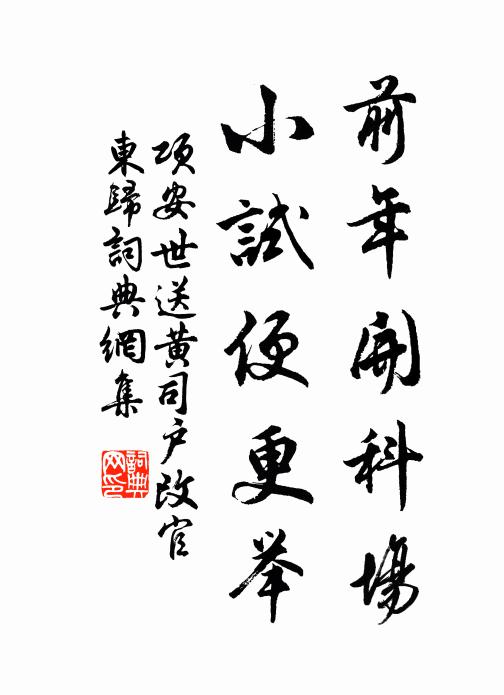 前年開科場
小試便更举
項安世送黄司户改官
東歸詞典網集
詞典
网印